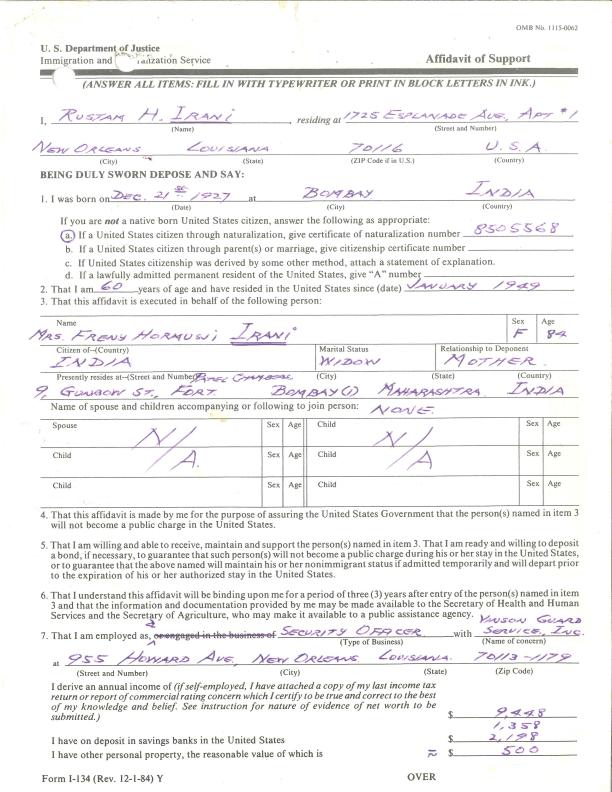 OMB No. 1115-0062
U. S. Department of Justice
Immigration and Naturalization Service
Affidavit of Support
(ANSWER ALL ITEMS: FILL IN WITH TYPEWRITER OR PRINT IN BLOCK LETTERS IN INK.)
I, RUSTAM H. IRANI, residing at 1725 ESPLANADE AVE, APT #1
(Name) (Street and Number)
NEW ORLEANS LOUISIANA 70116 U.S.A.
(City) (State) (ZIP Code if in U.S.) (Country)
BEING DULY SWORN DEPOSE AND SAY:
1. I was born on DEC. 21st 1927 at BOMBAY INDIA
(Date) (City) (Country)
If you are not a native born United States citizen, answer the following as appropriate:
a. If a United States citizen through naturalization, give certificate of naturalization number 8505568
b. If a United States citizen through parent(s) or marriage, give citizenship certificate number
c. If United States citizenship was derived by some other method, attach a statement of explanation.
d. If a lawfully admitted permanent resident of the United States, give "A" number
2. That I am 60 years of age and have resided in the United States since (date) JANUARY 1949
3. That this affidavit is executed in behalf of the following person:
Name Sex Age
MRS. FRENY HORMUSJI IRANI F 84
Citizen of--(Country) Marital Status Relationship to Deponent
INDIA WIDOW MOTHER
Presently resides at--(Street and Number) (City) (State) (Country)
9, GUNBOW ST., FORT. BOMBAY(1) MAHARASHTRA INDIA
Name of spouse and children accompanying or following to join person: NONE.
Spouse Sex Age Child Sex Age
N/A. N/A
Child Sex Age Child Sex Age
Child Sex Age Child Sex Age
4. That this affidavit is made by me for the purpose of assuring the United States Government that the person(s) named in item 3
will not become a public charge in the United States.
5. That I am willing and able to receive, maintain and support the person(s) named in item 3. That I am ready and willing to deposit
a bond, if necessary, to guarantee that such person(s) will not become a public charge during his or her stay in the United States,
or to guarantee that the above named will maintain his or her nonimmigrant status if admitted temporarily and will depart
prior to the expiration of his or her authorized stay in the United States.
6. That I understand this affidavit will be binding upon me for a period of three (3) years after entry of the person(s) named in item
3 and that the information and documentation provided by me may be made available to the Secretary of Health and Human
Services and the Secretary of Agriculture, who may make it available to a public assistance agency.
VINSON GUARD
7. That I am employed as, a or engaged in the business of SECURITY OFFICER with SERVICE, INC.
(Type of Business) (Name of concern)
at 955 HOWARD AVE, NEW ORLEANS LOUISIANA. 70113-1179
(Street and Number) (City) (State) (Zip Code)
I derive an annual income of (if self-employed, I have attached a copy of my last income tax
return or report of commercial rating concern which I certify to be true and correct to the best
of my knowledge and belief. See instruction for nature of evidence of net worth to be
submitted.) $ 9,448
1,358
I have on deposit in savings banks in the United States $ 2,198
I have other personal property, the reasonable value of which is ≈ $ 500
Form I-134 (Rev. 12-1-84) Y OVER